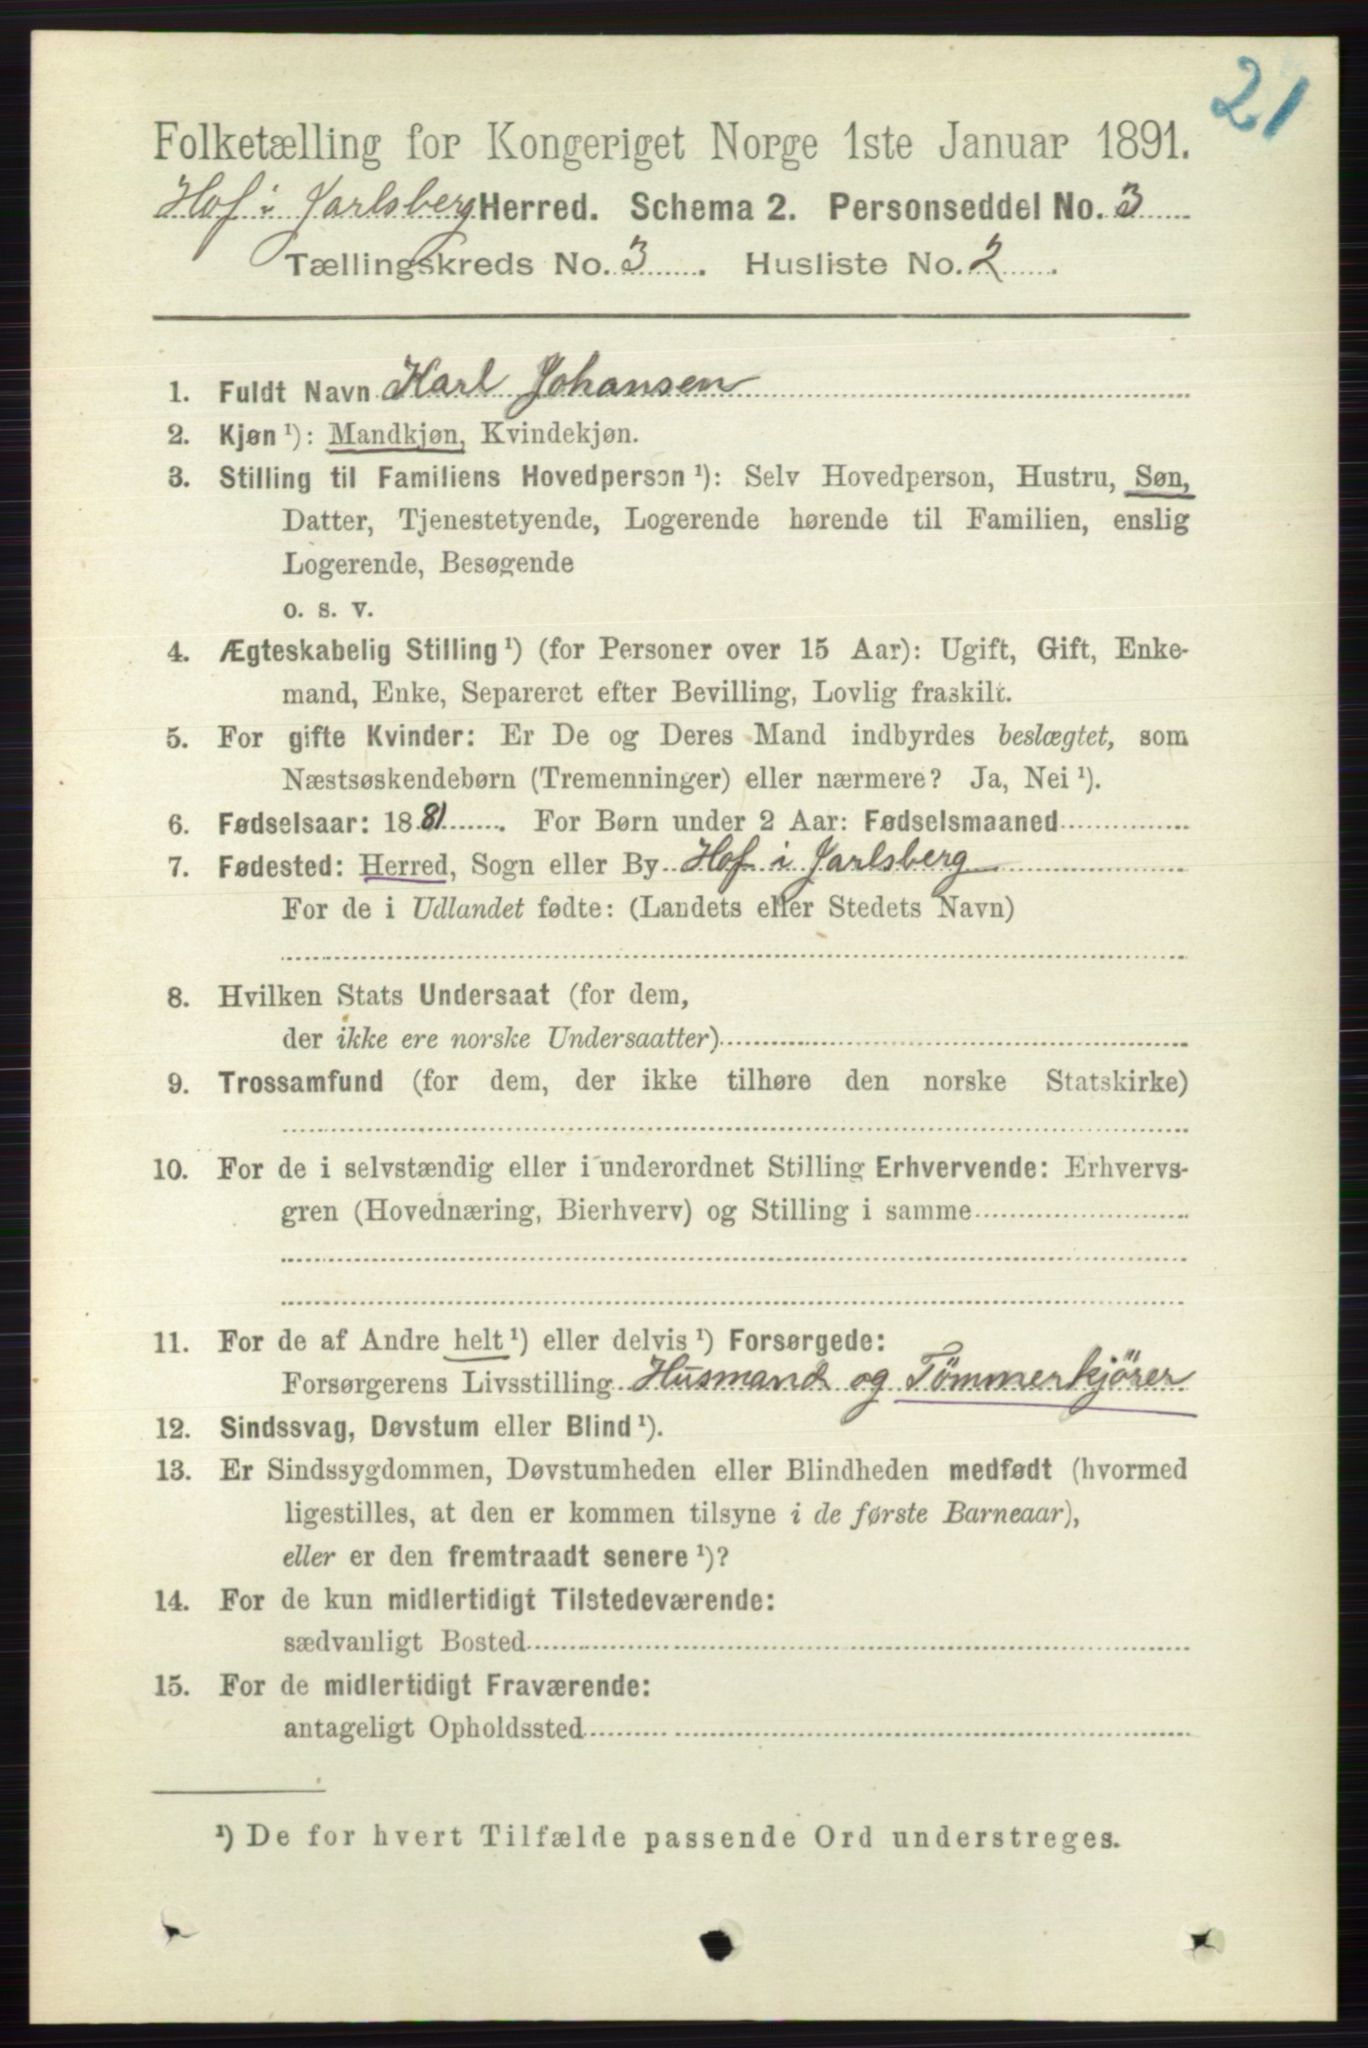 21
Folketælling for Kongeriget Norge 1ste Januar 1891.
Hof i Jarlsberg Herred. Schema 2. Personseddel No. 3
Tællingskreds No. 3. Husliste No. 2.
1. Fuldt Navn Karl Johansen
2. Kjøn ¹): Mandkjøn, Kvindekjøn.
3. Stilling til Familiens Hovedperson ¹): Selv Hovedperson, Hustru, Søn,
Datter, Tjenestetyende, Logerende hørende til Familien, enslig
Logerende, Besøgende
o. s. v.
4. Ægteskabelig Stilling ¹) (for Personer over 15 Aar): Ugift, Gift, Enke-
mand, Enke, Separeret efter Bevilling, Lovlig fraskilt.
5. For gifte Kvinder: Er De og Deres Mand indbyrdes beslægtet, som
Næstsøskendebørn (Tremenninger) eller nærmere? Ja, Nei ¹).
6. Fødselsaar: 1881. For Børn under 2 Aar: Fødselsmaaned
7. Fødested: Herred, Sogn eller By Hof i Jarlsberg
For de i Udlandet fødte: (Landets eller Stedets Navn)
8. Hvilken Stats Undersaat (for dem,
der ikke ere norske Undersaatter)
9. Trossamfund (for dem, der ikke tilhøre den norske Statskirke)
10. For de i selvstændig eller i underordnet Stilling Erhvervende: Erhvervs-
gren (Hovednæring, Bierhverv) og Stilling i samme
11. For de af Andre helt ¹) eller delvis ¹) Forsørgede:
Forsørgerens Livsstilling Husmand og Tömmerkjörer
12. Sindssvag, Døvstum eller Blind ¹).
13. Er Sindssygdommen, Døvstumheden eller Blindheden medfødt (hvormed
ligestilles, at den er kommen tilsyne i de første Barneaar),
eller er den fremtraadt senere ¹)?
14. For de kun midlertidigt Tilstedeværende:
sædvanligt Bosted
15. For de midlertidigt Fraværende:
antageligt Opholdssted
¹) De for hvert Tilfælde passende Ord understreges.